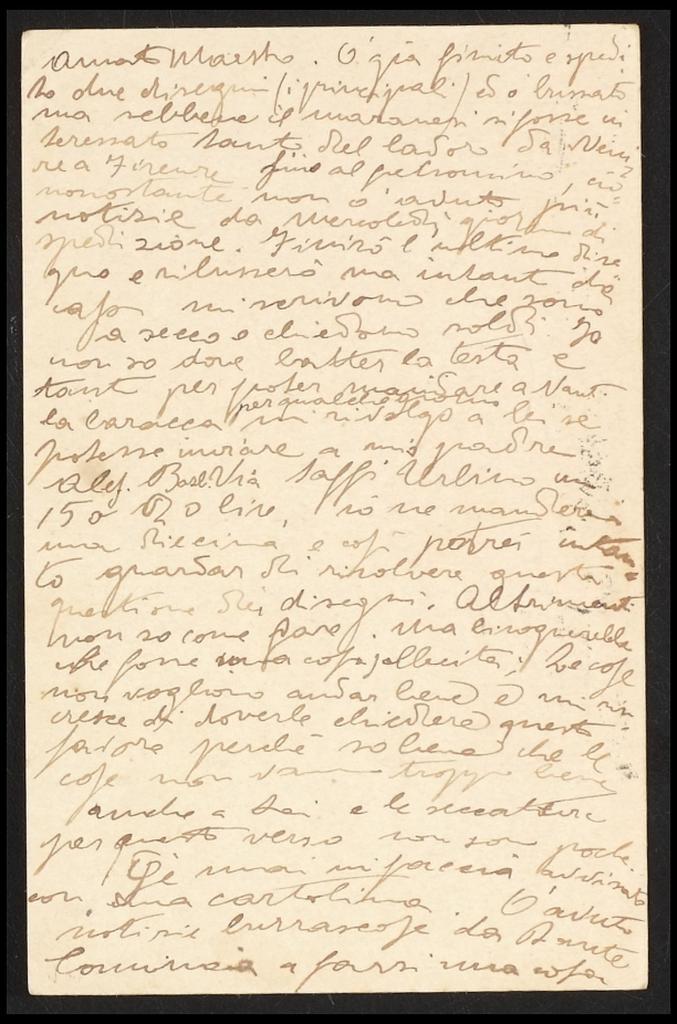 Amato Maestro. Ò già finito e spedi
to due disegni (i principali) ed ò bussato
ma sebbene il maranesi si fosse in
teressato tanto del lavoro da veni
re a Firenze fino al petronino, ciò
nonostante non ò avuto più
notizie da Mercoledì giorno di
spedizione. Finirò l'ultimo dise
gno e ribusserò ma intant da
mi scrivono che sono
a secco e chiedono soldi. Io
non so dove batter la testa e
tant per poter mandare avant.
la baracca per qualche giorno mi rivolgo a lei se
potesse inviare a mio padre
Via Saffi Urbino un
15 o 20 lire, io ne manderò
una diecina e cosi potrei intan=
to guardar di risolvere questa
questione dei disegni. Altrimenti
non so come fare. ma bisognerebbe
che fosse una cosa sollecita; Le cose
non vogliono andar bene e mi rin=
cresce di doverle chiedere questo
favore perchè so bene che le
cose non vanno troppo bene
anche a Lei e le seccature
per questo verso non son poche
Se mai mi faccia avvisato
con una cartolina Ò avuto
notizie burrascose da
Comincia a farsi una cosa